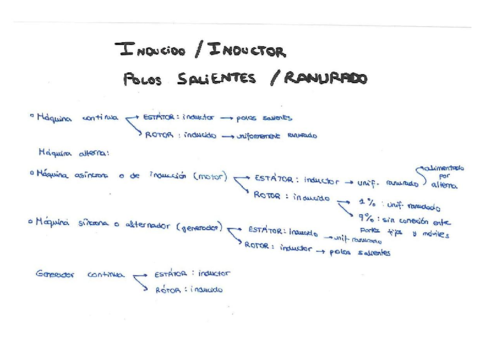 INDUCIDO / INDUCTOR
POLOS SALIENTES / RANURADO
Máquina continua ESTÁTOR: inductor → polos salientes
ROTOR: inducido → uniformemente ranurado
Máquina alterna:
Máquina asíncrona o de inducción (motor) ESTÁTOR: inductor → unif. ranurado alimentado por alterna
ROTOR: inducido 1%: unif. ranurado
9%: sin conexión entre partes fijas y móviles
Máquina síncrona o alternador (generador) ESTÁTOR: Inducido → unif. ranurado
ROTOR: inductor → polos salientes
Generador continua ESTÁTOR: inductor
RÓTOR: inducido